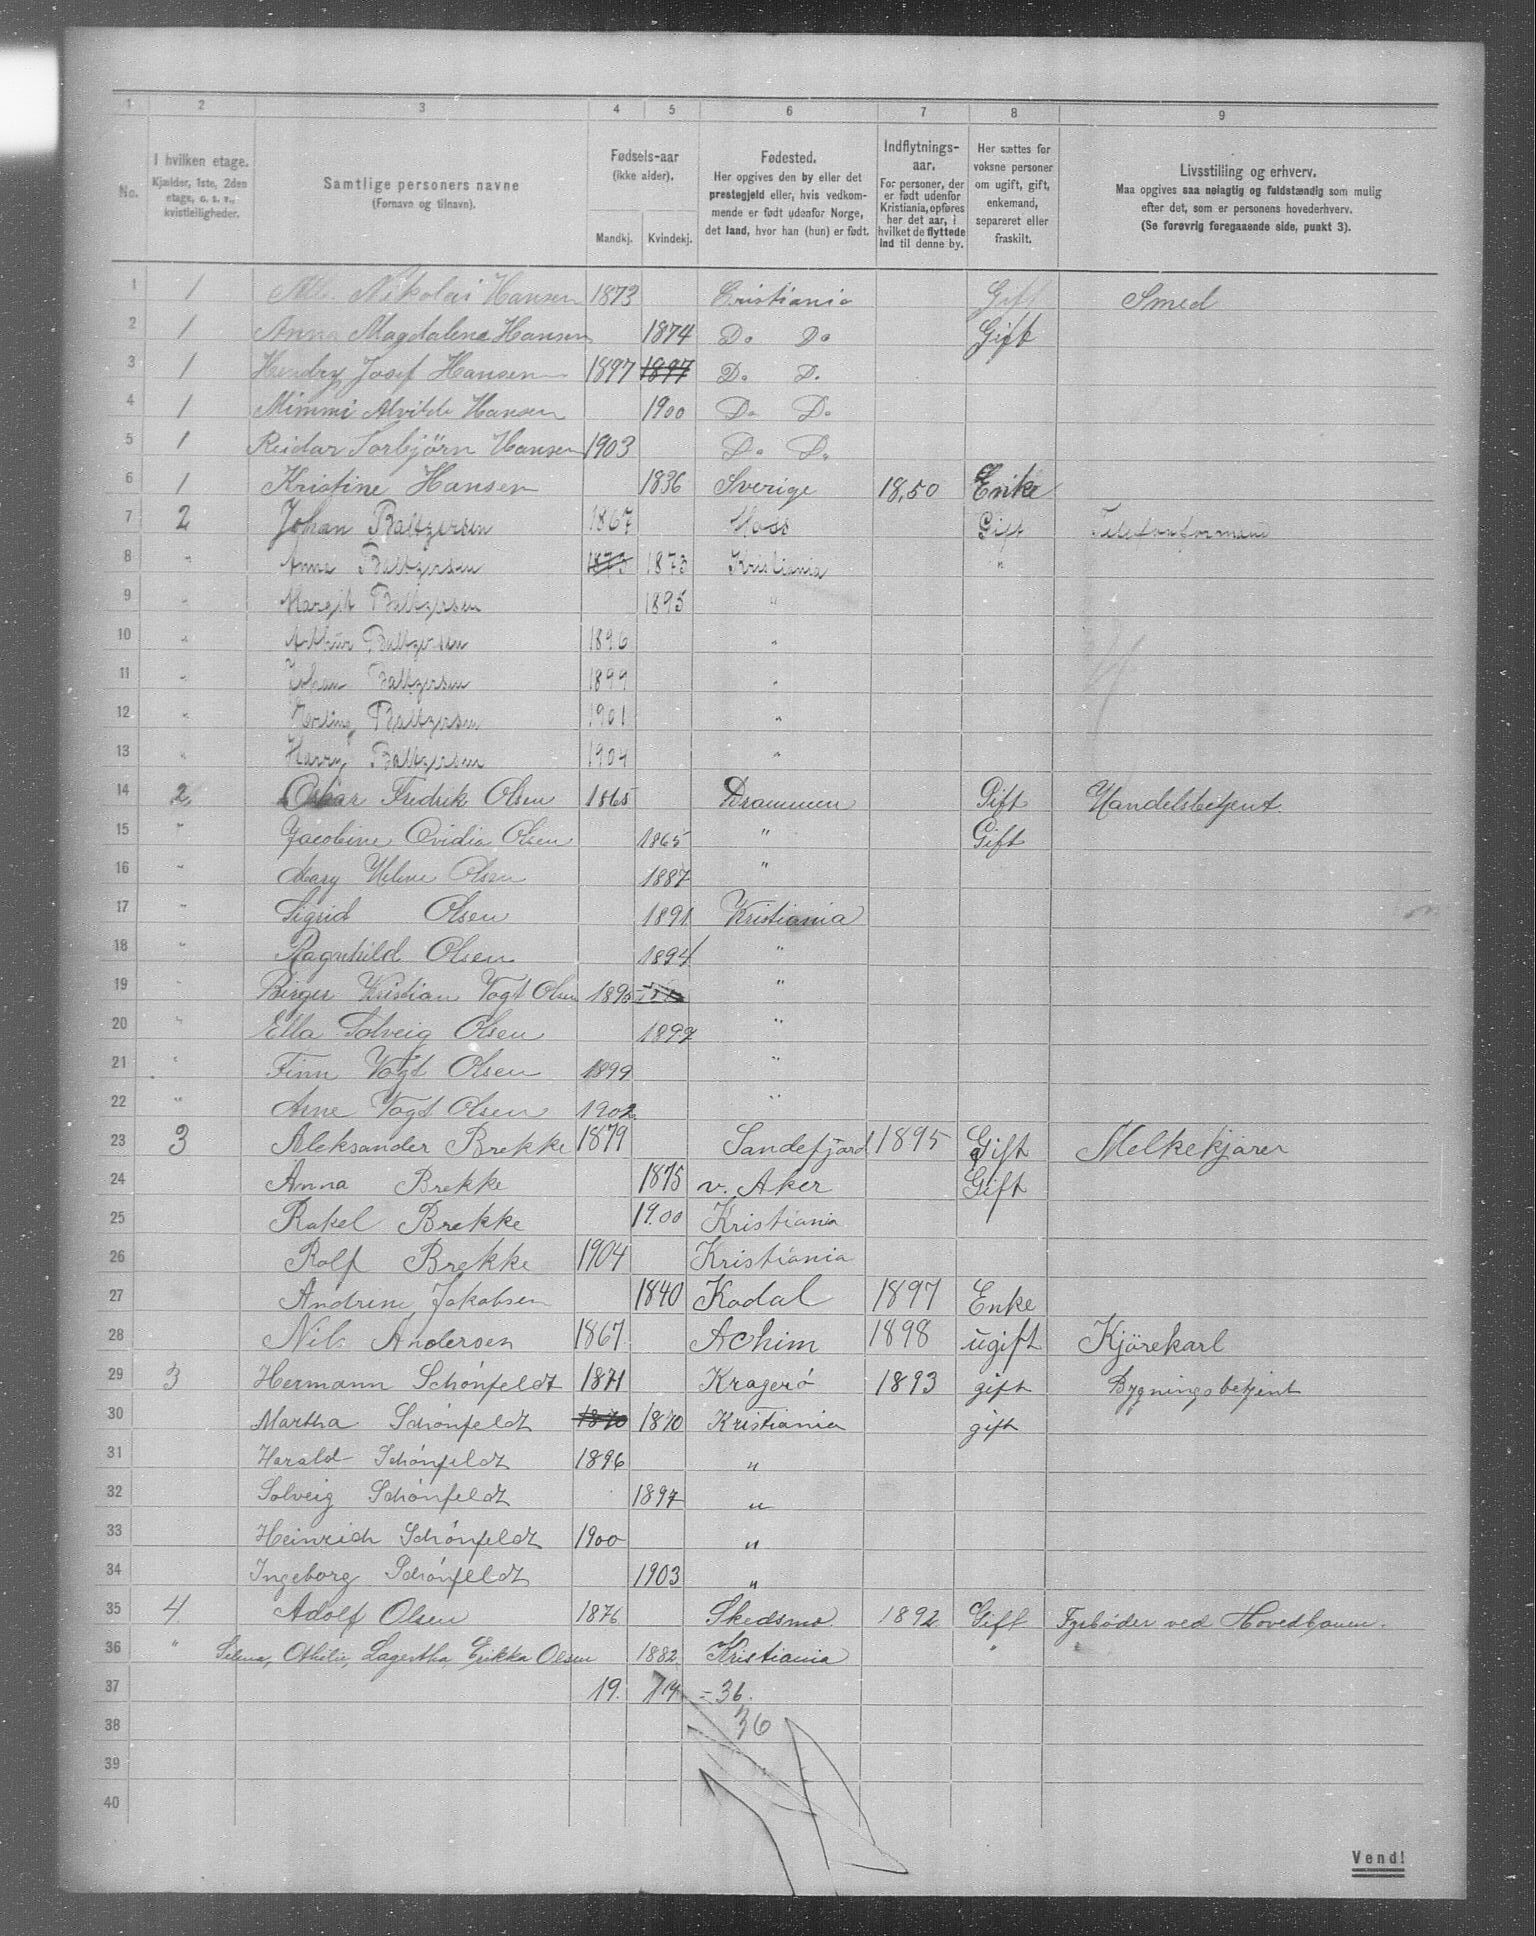 1 2 3 4 5 6 7 8 9
No. I hvilken etage. Kjælder, 1ste, 2den etage, o. s. v., kvistleiligheder. Samtlige personers navne (Fornavn og tilnavn). Fødsels-aar (ikke alder). Mandkj. Kvindekj. Fødested. Her opgives den by eller det prestegjeld eller, hvis vedkommende er født udenfor Norge, det land, hvor han (hun) er født. Indflytnings-aar. For personer, der er født udenfor Kristiania, opføres her det aar, i hvilket de flyttede ind til denne by. Her sættes for voksne personer om ugift, gift, enkemand, separeret eller fraskilt. Livsstilling og erhverv. Maa opgives saa nøiagtig og fuldstændig som mulig efter det, som er personens hovederhverv. (Se forøvrig foregaaende side, punkt 3).
1 1 Nikolai Hansen 1873 Cristiania Gift Smed
2 1 Anna Magdalena Hansen 1874 Do Do Gift
3 1 Hendry Josef Hansen 1897 1897 Do D.
4 1 Mimmi Alvilde Hansen 1900 Do Do
5 1 Reidar Torbjörn Hansen 1903 Do Do
6 1 Kristine Hansen 1836 Sverige 18,50 Enke
7 2 Johan Baltzersen 1867 Moss Gift Telefonformand
8 " Anna Baltzersen 1873 1873 Kristiania "
9 " Margit Baltzersen 1895 "
10 " Arthur Baltzersen 1896 "
11 " Johan Baltzersen 1899 "
12 " Erling Baltzersen 1901 "
13 " Harry Baltzersen 1904 "
14 2 Oskar Fredrik Olsen 1865 Drammen Gift Handelsbetjent.
15 " Jacobine Ovidia Olsen 1865 " Gift
16 " Mary Helene Olsen 1887 "
17 " Sigrid Olsen 1891 Kristiania
18 " Ragnhild Olsen 1894 "
19 " Birger Kristian Vogt Olsen 1895 "
20 " Ella Solveig Olsen 1897 "
21 " Finn Vogt Olsen 1899 "
22 " Arne Vogt Olsen 1902 "
23 3 Aleksander Brekke 1879 Sandefjord 1895 Gift Melkekjører
24 Anna Brekke 1875 v. Aker Gift
25 Rakel Brekke 19.00 Kristiania
26 Rolf Brekke 1904 Kristiania
27 Andrine Jakobsen 1840 Kodal 1897 Enke
28 Nils Andersen 1867 Achim 1898 ugift Kjörekarl
29 3 Hermann Schönfeldt 1871 Kragerö 1893 gift Bygningsbetjent
30 Martha Schönfeldt 1870 1870 Kristiania gift
31 Harald Schönfeldt 1896 "
32 Solveig Schönfeldt 1897 "
33 Heinrich Schönfeldt 1900 "
34 Ingeborg Schönfeldt 1903 "
35 4 Adolf Olsen 1876 Skedsmo. 1892 Gift Fyrbøder ved Hovedbanen.
36 " Selma, Othilie, Lagertha, Erikka Olsen 1882. Kristiania "
37 19. 17 = 36.
38 36
39
40
Vend!